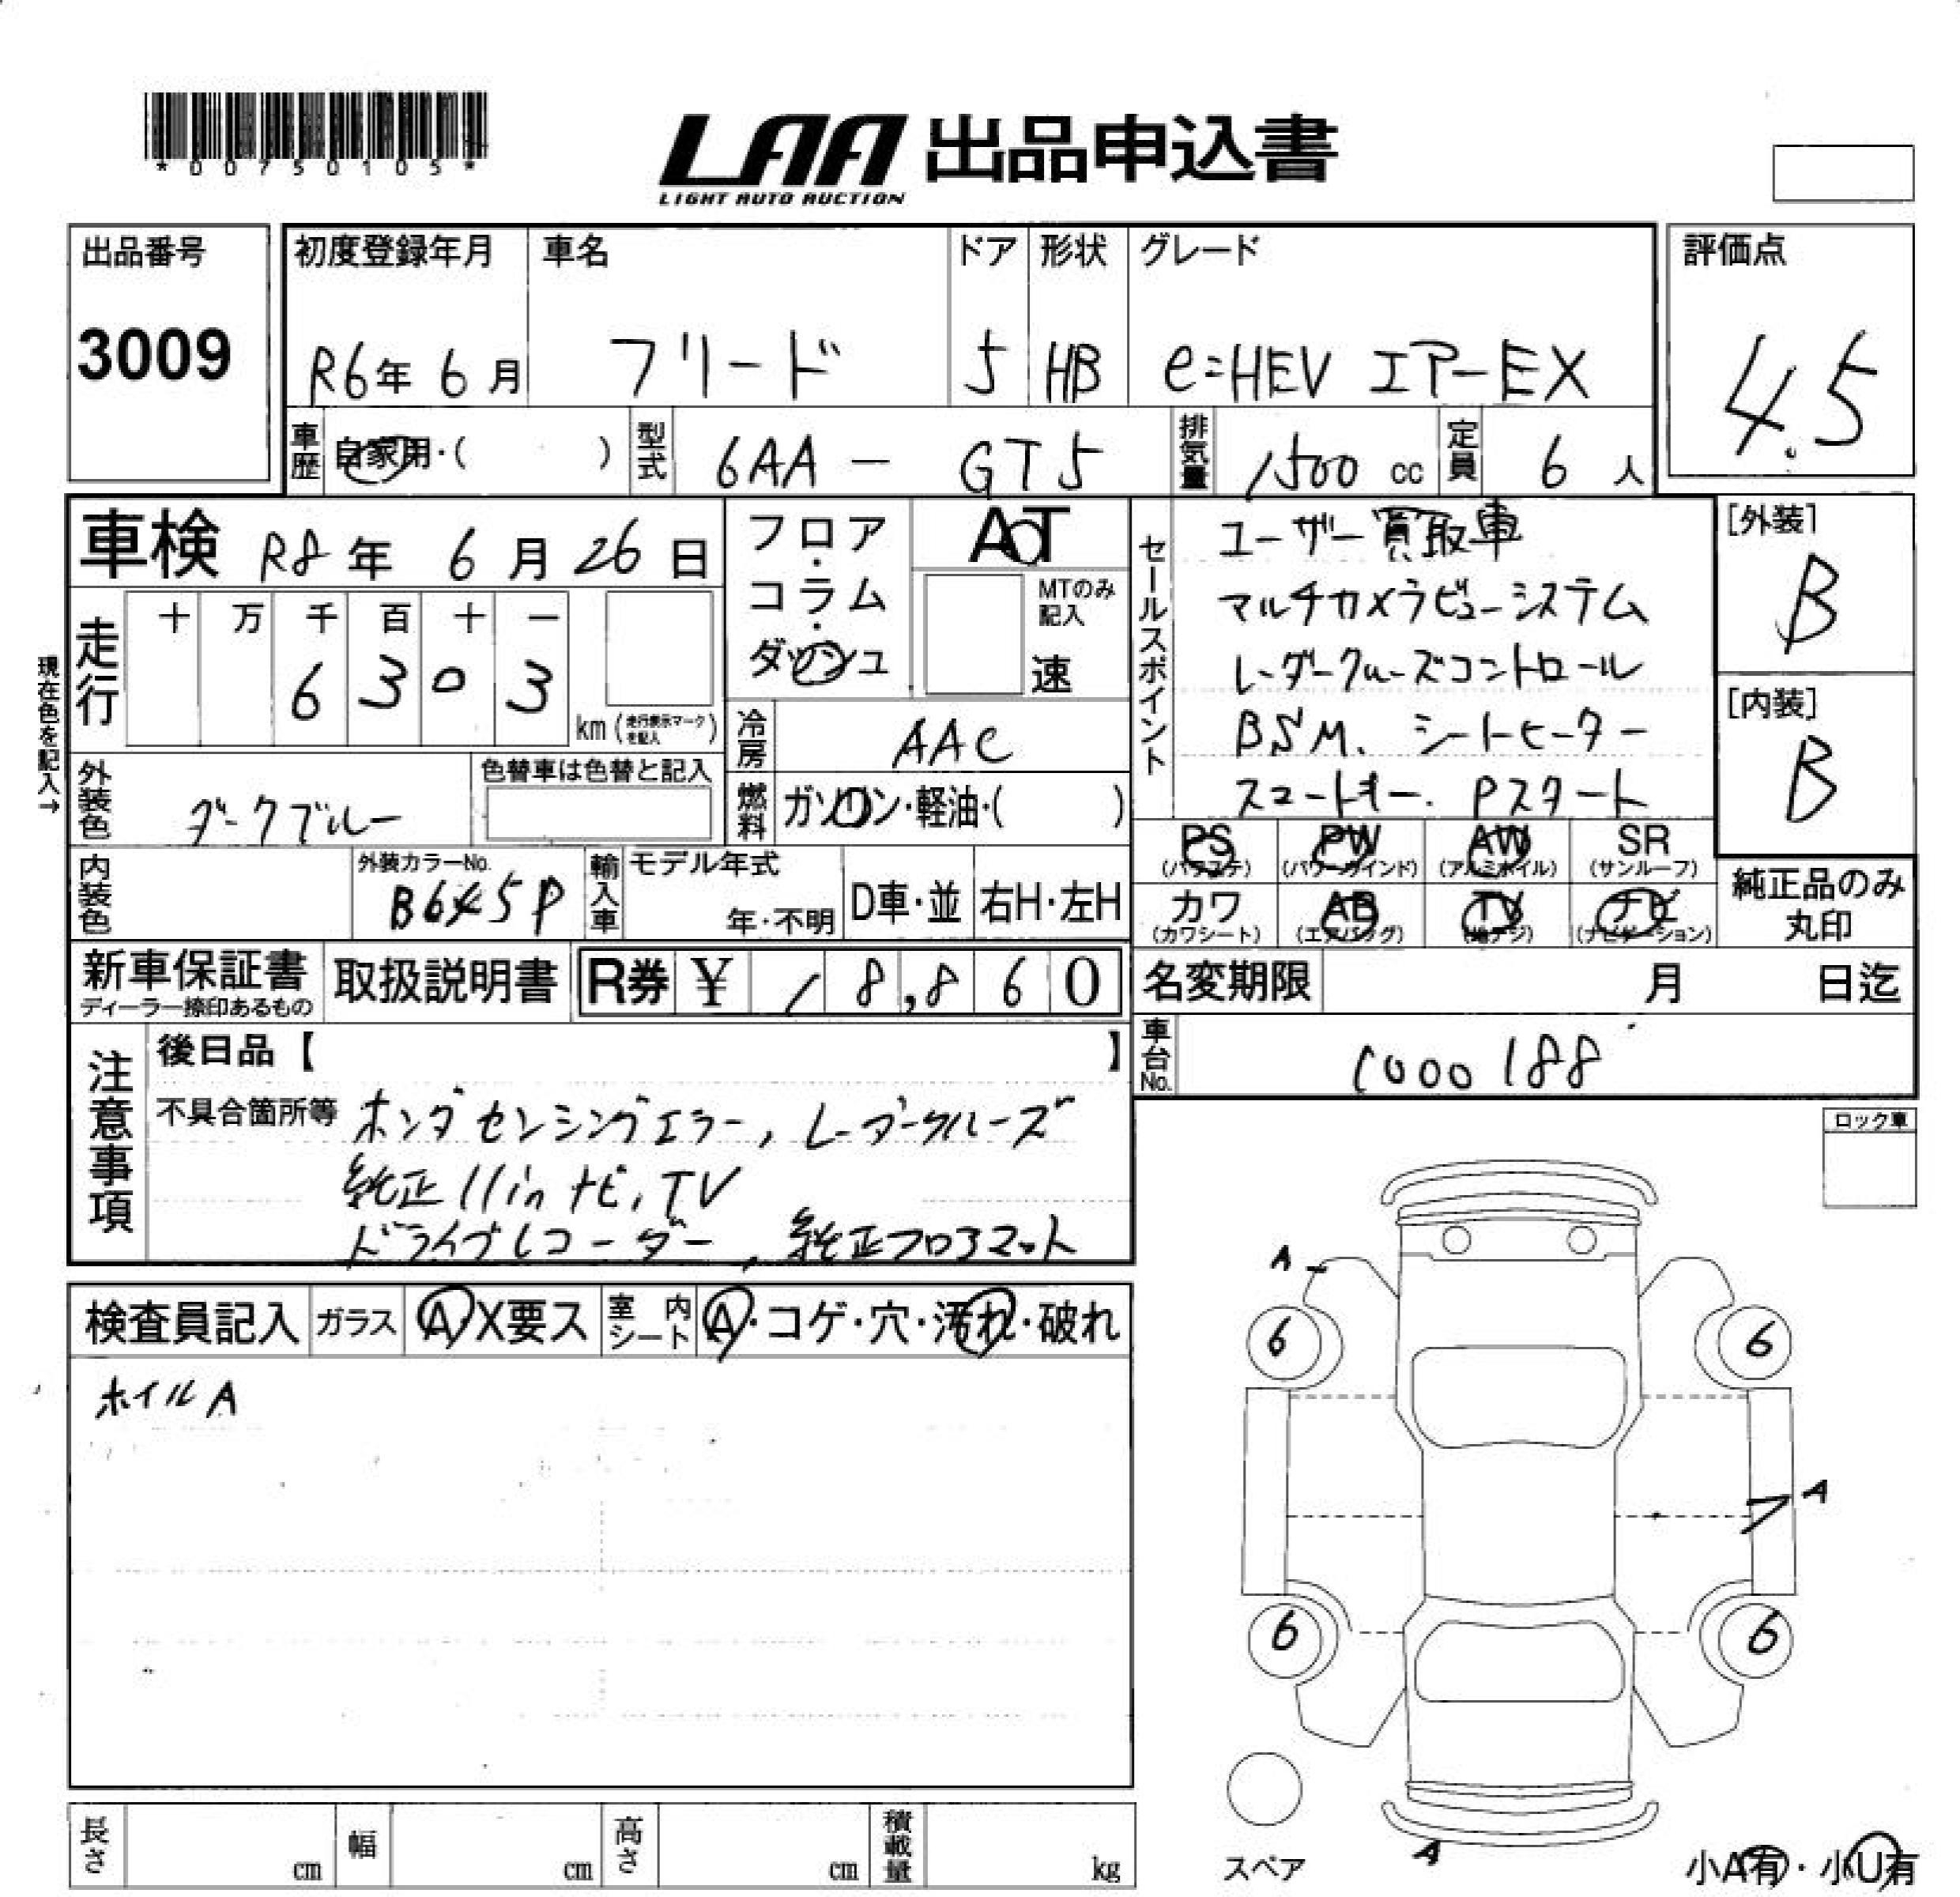 *00750105*
LAA 出品申込書
LIGHT AUTO AUCTION
出品番号
3009
初度登録年月
R6年 6月
車名
フリード
ドア
5
形状
HB
グレード
e:HEV エアーEX
評価点
4.5
車歴
自家用・( )
型式
6AA - GT5
排気量
1500 cc
定員
6 人
車検 R8年 6月 26日
フロア・コラム・ダッシュ
AT
MTのみ記入
速
セールスポイント
ユーザー買取車
マルチカメラビューシステム
レーダークルーズコントロール
BSM、シートヒーター
スマートキー. Pスタート
[外装]
B
[内装]
B
現在色を記入→
走行
十 万 千 百 十 一
6 3 0 3
km (走行表示マークを記入)
冷房
AAC
外装色
ダークブルー
色替車は色替と記入
燃料
ガソリン・軽油・( )
PS (パワステ)
PW (パワーウインド)
AW (アルミホイル)
SR (サンルーフ)
カワ (カワシート)
AB (エアバッグ)
TV (地デジ)
ナビ (ナビゲーション)
純正品のみ丸印
内装色
外装カラーNo.
B645P
輸入車
モデル年式
年・不明
D車・並
右H・左H
新車保証書
ディーラー捺印あるもの
取扱説明書
R券 ¥ 18,860
名変期限 月 日迄
車台No.
1000188
注意事項
後日品【 】
不具合箇所等 ホンダセンシングエラー, レーダークルーズ
純正11inナビ, TV
ドライブレコーダー, 純正フロアマット
ロック車
検査員記入
ガラス
A X要ス
室内シート
A・コゲ・穴・汚れ・破れ
ホイルA
A
6
6
A
6
6
A
スペア
小A有・小U有
長さ cm
幅 cm
高さ cm
積載量 kg